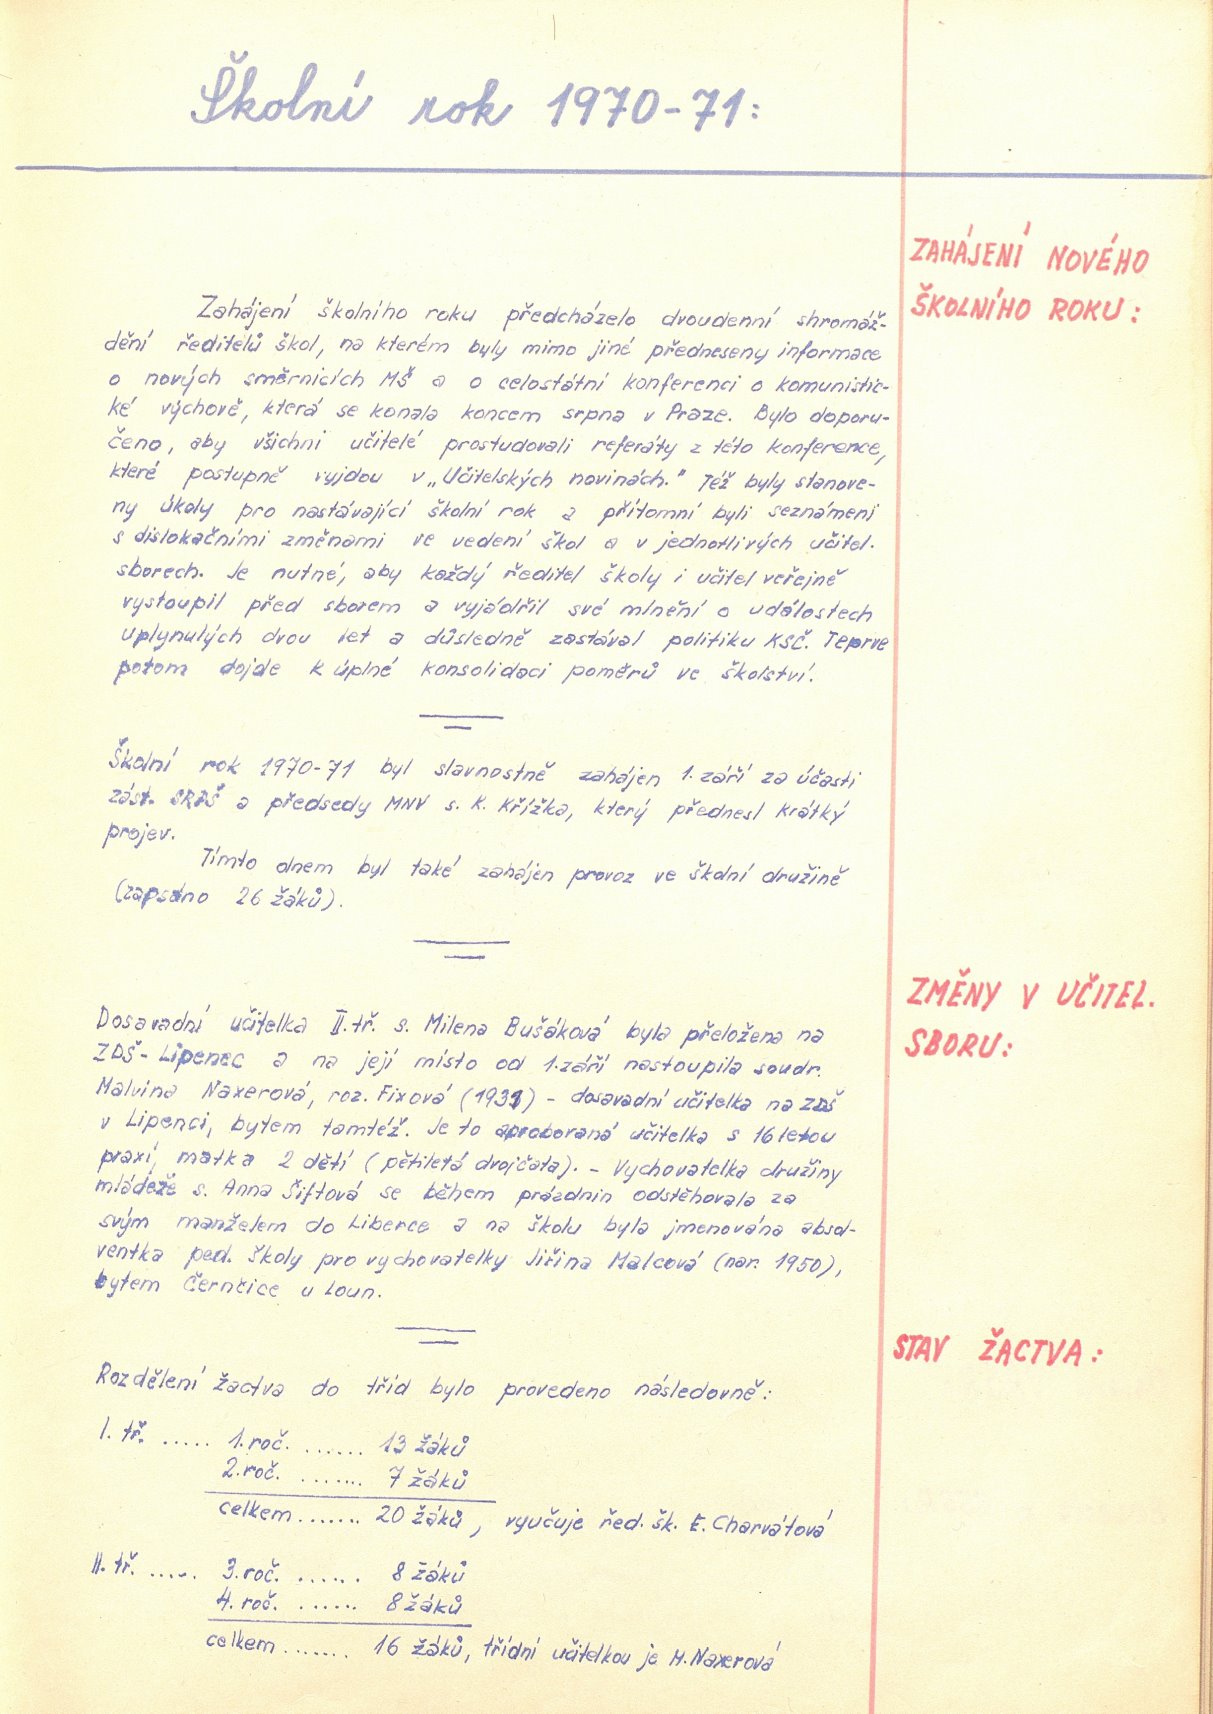 Školní rok 1970-71:
ZAHÁJENÍ NOVÉHO
ŠKOLNÍHO ROKU:
Zahájení školního roku předcházelo dvoudenní shromáž-
dění ředitelů škol, na kterém byly mimo jiné předneseny informace
o nových směrnicích MŠ a o celostátní konferenci o komunistic-
ké výchově, která se konala koncem srpna v Praze. Bylo doporu-
čeno, aby všichni učitelé prostudovali referáty z této konference,
které postupně vyjdou v „Učitelských novinách." Též byly stanove-
ny úkoly pro nastávající školní rok a přítomní byli seznámeni
s dislokačními změnami ve vedení škol a v jednotlivých učitel.
sborech. Je nutné, aby každý ředitel školy i učitel veřejně
vystoupil před sborem a vyjádřil své mínění o událostech
uplynulých dvou let a důsledně zastával politiku KSČ. Teprve
potom dojde k úplné konsolidaci poměrů ve školství.
Školní rok 1970-71 byl slavnostně zahájen 1. září za účasti
zást. SRPŠ a předsedy MNV s. K. Křížka, který přednesl krátký
projev.
Tímto dnem byl také zahájen provoz ve školní družině
(zapsáno 26 žáků).
ZMĚNY V UČITEL.
SBORU:
Dosavadní učitelka II. tř. s. Milena Bušáková byla přeložena na
ZDŠ - Lipenec a na její místo od 1. září nastoupila soudr.
Malvina Naxerová, roz. Fixová (1931) - dosavadní učitelka na ZDŠ
v Lipenci, bytem tamtéž. Je to aprobovaná učitelka s 16letou
praxí, matka 2 dětí (pětiletá dvojčata). - Vychovatelka družiny
mládeže s. Anna Šiftová se během prázdnin odstěhovala za
svým manželem do Liberce a na školu byla jmenována absol-
ventka ped. školy pro vychovatelky Jiřina Malcová (nar. 1950),
bytem Černčice u Loun.
STAV ŽACTVA:
Rozdělení žactva do tříd bylo provedeno následovně:
I. tř. ..... 1. roč. ...... 13 žáků
2. roč. ....... 7 žáků
celkem ....... 20 žáků, vyučuje řed. šk. E. Charvátová
II. tř. ..... 3. roč. ...... 8 žáků
4. roč. ...... 8 žáků
celkem ....... 16 žáků, třídní učitelkou je M. Naxerová